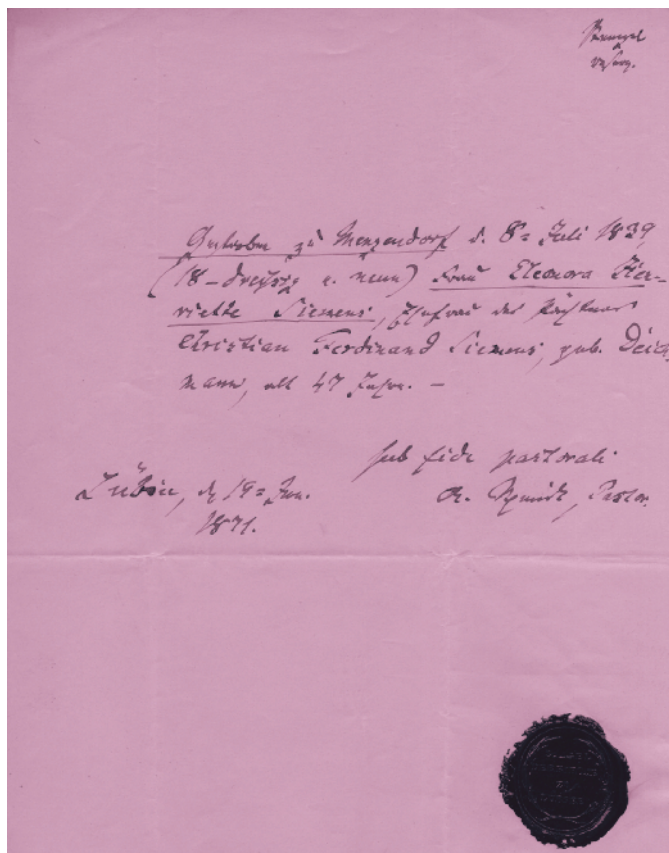 Gestorben zu Menzendorf d. 8= Juli 1839,
(18-dreißig u. neun) Frau Eleonora Hen-
riette Siemens, Ehefrau des Pächters
Christian Ferdinand Siemens, geb. Deich
mann, alt 47 Jahre. —
sub fide pastorali
Lübsee, d. 19= Jun. Schmidt, Pastor.
1871.